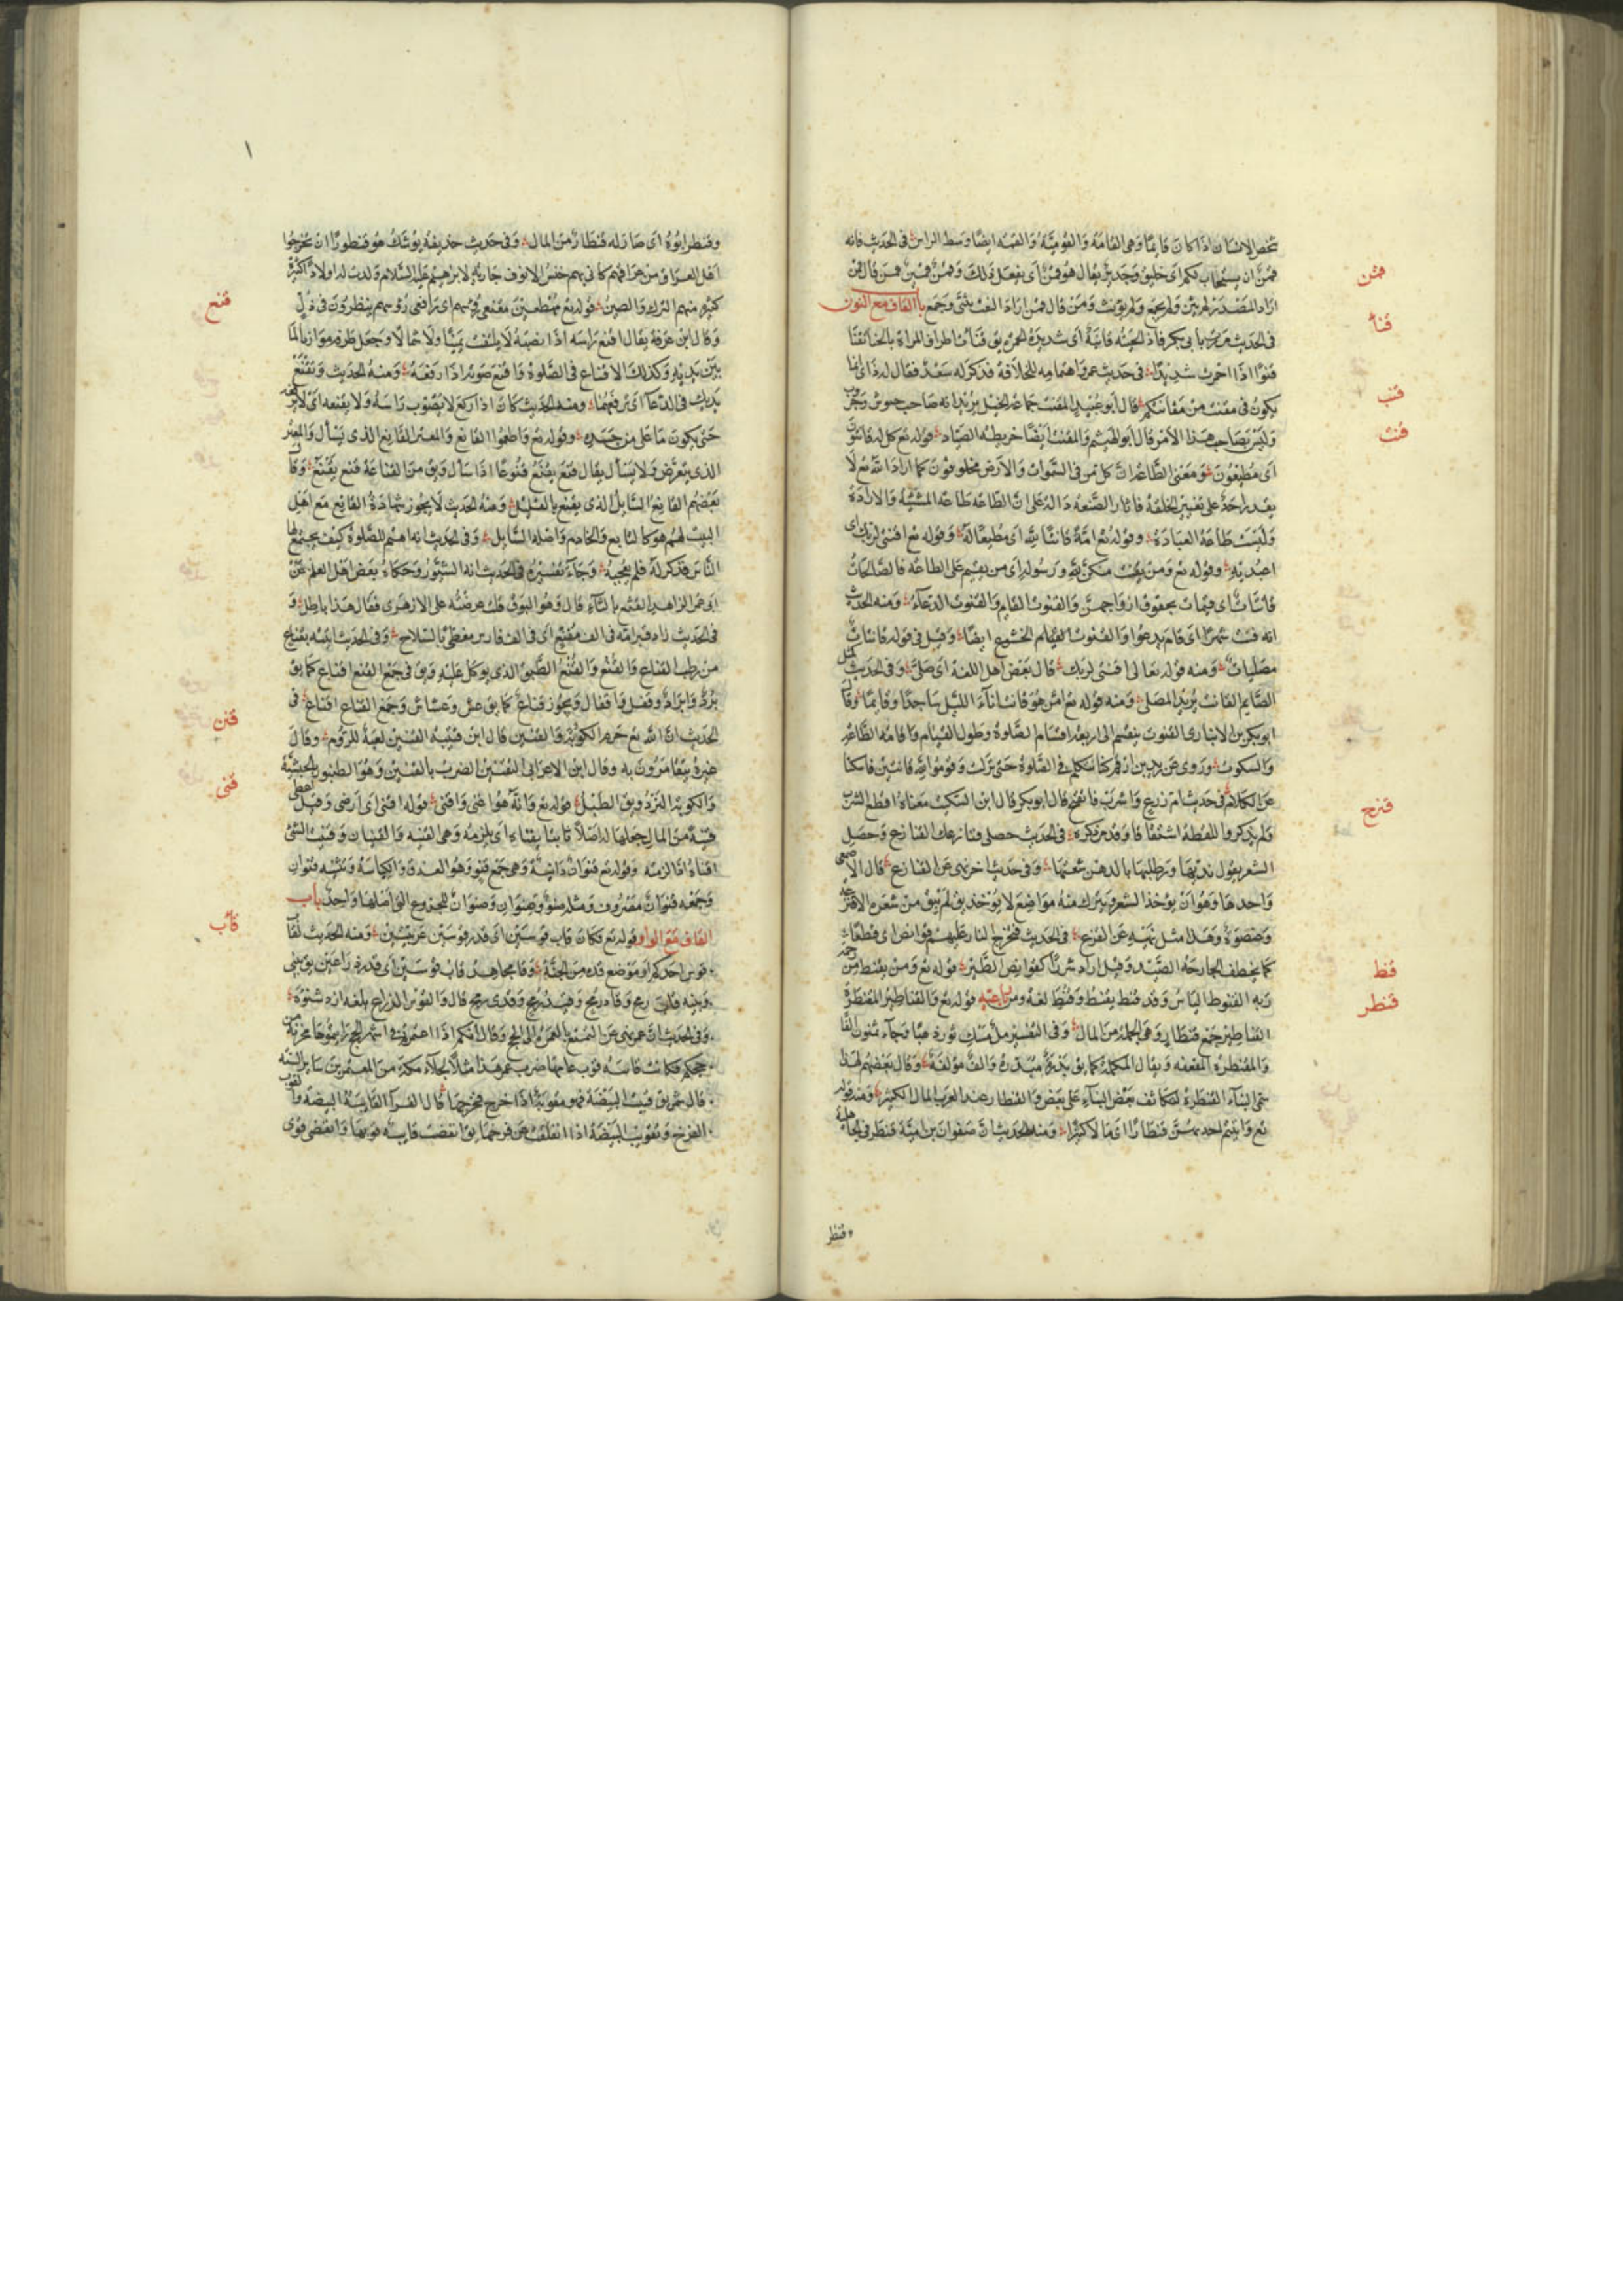 شخص الانسان اذا كان قائما وهى القامة والقومية والقمة ايضا وسط الراس في الحديث فانه
قمن
قمن ان يستجاب لكم اى خليق وجدير يقال هو قمن اى يفعل ذلك وقمن وقمين فمن قال قمن
اراد المصدر لم يثن ولم يجمع ولم يؤنث ومن قال قمن اراد النعت يثنى وجمع باب القاف مع النون
قنأ
في الحديث بابى بكر فاذا لحيته قانئة اى شديدة الحمرة يق قنأت اطراف المراة بالحنا تقنا
قنوءا اذا احمرت شديدا في حديث عمر واهتمامه للخلافة فذكر له سعد فقال له ذاك انما
قنب
يكون في مقنب من مقانبكم قال ابو عبيد المقنب جماعة الخيل يريد انه صاحب جيوش وحرب
قنت
وليس بصاحب هذا الامر قال ابو الهيثم والمقنب ايضا خريطة الصياد قوله تع كل له قانتون
اى مطيعون ومعنى الطاعة ان كل من في السموات والارض مخلوقون كما اراد الله تع لا
يقدر احد على تغيير الخلقة فاثار الصنعة دالة على ان الطاعة طاعة المشيئة والارادة
وليست طاعة العبادة وقوله تع امة قانتا لله اى مطيعا له وقوله تع اقنتى لربك اى
اعبديه وقوله تع ومن يقنت منكن لله ورسوله اى من يقيم على الطاعة فالصالحات
قانتات اى قيمات بحقوق ازواجهن والقنوت القيام والقنوت الدعاء ومنه الحديث
انه قنت شهرا اى قام يدعوا والقنوت القيام الخشوع ايضا وقيل في قوله قانتات
مصليات ومنه قوله تعالى اقنتى لربك قال بعض اهل اللغة اى صلى وفي الحديث كمثل
الصايم القانت يريد المصلى ومنه قوله تع امن هو قانت اناء الليل ساجدا وقايما وقال
ابو بكر بن الانبارى القنوت ينقسم الى اربعة اقسام الصلوة وطول القيام واقامة الطاعة
والسكوت وروى عن زيد بن ارقم كنا نتكلم في الصلوة حتى نزلت وقوموا لله قانتين فامسكنا
قنح
عن الكلام في حديث ام زرع واشرب فاتقنح قال ابو بكر قال ابن السكيت معناه اقطع الشرب
قنزع
ولم يذكروا للفظة اشتقاقا وقد مر ذكره في الحديث حصلى قنازعك القنازع وحصل
الشعر يقول نديها ورطبها بالدهن شعثها وفي حديث اخر نهى عن القنازع قال الاصمعى
واحدها وهو ان يؤخذ الشعر ويترك منه مواضع لا يؤخذ يق لم يبق من شعره الا قنزعة
وعنصوة وهذا مثل نهيه عن القزع في الحديث فتخرج النار عليهم قوانص اى قطعا
قنط
كما يختطف الجارحة الصيد وقيل اراد شررا كقوانص الطير قوله تع ومن يقنط من رحمة
قنطر
ربه القنوط الياس وقد قنط يقنط وقنط لغة ومن رباعيه قوله تع والقناطير المقنطرة
القناطير جمع قنطار وهى الجملة من المال وفي التفسير ملء مسك ثور ذهبا وجاء ثمنون الفا
والمقنطرة المضعفة ويقال المكملة كما يق بدرة مبدرة والف مؤلفة وقال بعضهم لهذا
سمى البناء القنطرة لتكاثف بعض البناء على بعض والقنطار عند العرب المال الكثير ومنه قوله
تع واتيتم احديهن قنطارا اى مالا كثيرا ومنه الحديث ان صفوان بن امية قنطر في الجاهلية
وقنطر
وقنطر ابوه اى صار له قنطار من المال وفي حديث حذيفة يوشك هو قنطورا ان يخرجوا
اهل العراق من عراقهم كانى بهم خنس الانوف جارية لابراهيم عليه السلام ولدت له اولادا كثيرة
قنع
كثير منهم الترك والصين قوله تع مهطعين مقنعى رؤسهم اى رافعى رؤسهم ينظرون في ذل
وقال ابن عرفة يقال اقنع راسه اذا نصبه لا يلتفت يمينا ولا شمالا وجعل طرفه موازيا لما
بين يديه وكذلك الاقناع في الصلوة واقنع صوته اذا رفعه ومنه الحديث وتقنع
يديك في الدعاء اى ترفعهما ومنه الحديث كان اذا ركع لا يصوب راسه ولا يقنعه اى لا يرفعه
حتى يكون ما على من جسده وقوله تع واطعموا القانع والمعتر القانع الذى يسأل والمعتر
الذى يتعرض ولا يسأل يقال قنع يقنع قنوعا اذا سأل ويق من القناعة قنع يقنع وقال
بعضهم القانع السايل الذى يقنع بالقليل ومنه الحديث لا يجوز شهادة القانع مع اهل
البيت لهم هو كالتابع والخادم واصله السايل وفي الحديث انه اهتم للصلوة كيف يجمع لها
الناس فذكر له القنع فلم يعجبه وجاء تفسيره في الحديث انه الشبور وحكاه بعض اهل العلم عن
ابى عمر الزاهد القثع بالثاء قال وهو البوق قلت عرضته على الازهرى فقال هذا باطل و
في الحديث زار قبر امه في الف مقنع اى في الف فارس مغطى بالسلاح وفي الحديث اتيته بقناع
من رطب القناع والقنع والقنع الطبق الذى يؤكل عليه ويق في جمع القنع اقناع كما يق
برد وابراد وقفل واقفال ويجوز قناع كما يق عش وعشاش وجمع القناع اقناع في
قنن
الحديث ان الله تع حرم الكوبة والقنين قال ابن قتيبة القنين لعبة للروم وقال
غيره يتقامرون به وقال ابن الاعرابى التقنين الضرب بالقنين وهو الطنبور بالحبشية
قنى
والكوبة النرد ويق الطبل قوله تع وانه هو اغنى واقنى قوله اقنى اى ارضى وقيل اعطى
قنية من المال جعلها له اصلا ثابتا يقناه اى يلزمه وهى القنية والقنيان وقنيت الشئ
اقناه اذا لزمته وقوله تع قنوان دانية وهى جمع قنو وهو العذق والكباسة وتثنيه قنوان
وجمعه قنوان مصروف ومثله صنو وصنوان وصنوان للجذوع التى اصلها واحد باب
قاب
القاف مع الواو قوله تع فكان قاب قوسين اى قدر قوسين عربيتين ومنه الحديث لقاب
قوس احدكم او موضع قده من الجنة وقال مجاهد قاب قوسين اى قدر ذراعين يق بينى
وبينه قاب رمح وقاد رمح وقيد رمح وقدى رمح قال والقوس الذراع بلغة ازد شنوءة
وفي الحديث ان عمر نهى عن التمتع بالعمرة الى الحج وقال انكم اذا اعتمرتم في اشهر الحج رايتموها مجزئة من
حجكم فكانت قائبة قوب عامها ضرب عمر هذا مثلا لخلاء مكة من المعتمرين ساير السنة
قال شمر يق قيبت البيضة فهى مقوبة اذا خرج فرخها قال الفرا القايبة البيضة والقوب
الفرخ وتقوبت البيضة اذا انفلقت عن فرخها يق انقضت قايبة قوبها وانقضى قوى